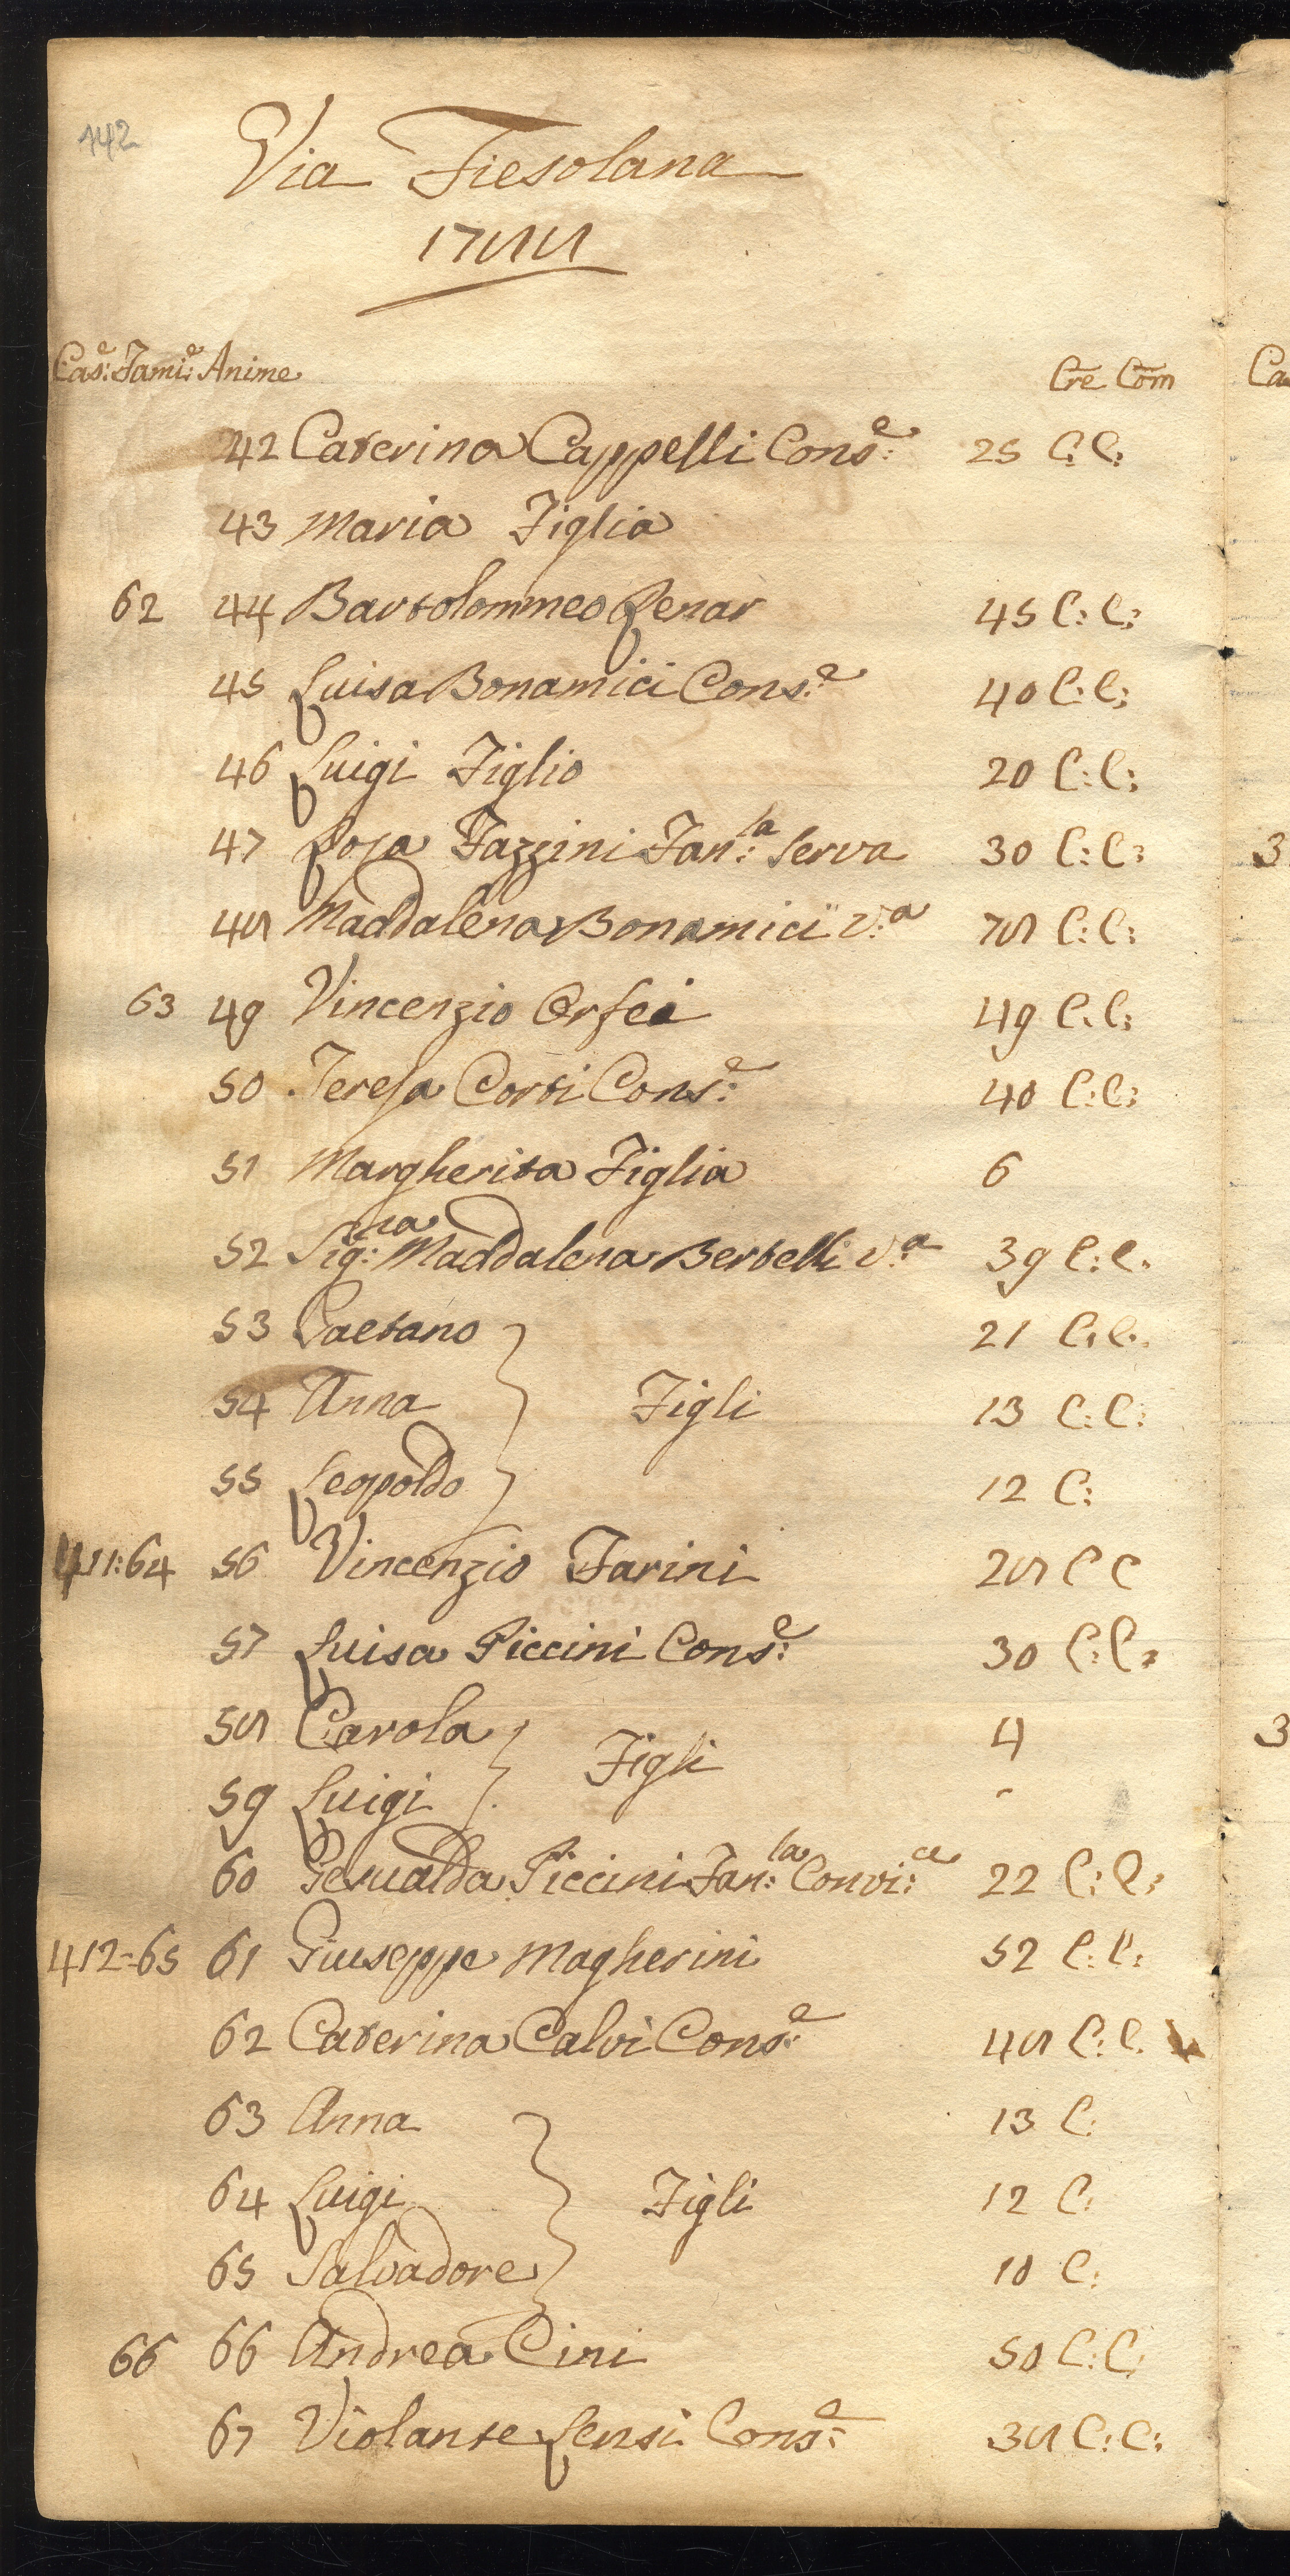 142
Via Fiesolana
1788
Cas:e Fami:e Anime Cre Com
42 Caterina Cappelli Cons:e 25 C: C:
43 Maria Figlia
62 44 Bartolommeo Renar 45 C: C:
45 Luisa Bonamici Cons:e 40 C: C:
46 Luigi Figlio 20 C: C:
47 Rosa Fazzini Fan:la Serva 30 C: C:
48 Maddalena Bonamici V:a 78 C: C:
63 49 Vincenzio Orfei 49 C: C:
50 Teresa Corti Cons:e 40 C: C:
51 Margherita Figlia 6
52 Sig:ra Maddalena Bertelli V:a 39 C: C:
53 Gaetano 21 C: C:
54 Anna Figli 13 C: C:
55 Leopoldo 12 C:
411:64 56 Vincenzio Farini 28 C C
57 Luisa Piccini Cons:e 30 C: C:
58 Carola Figli 4
59 Luigi -
60 Gesualda Piccini Fan:la Convi:ce 22 C: C:
412=65 61 Giuseppe Magherini 52 C: C:
62 Caterina Calvi Cons:e 48 C: C:
63 Anna 13 C:
64 Luigi Figli 12 C:
65 Salvadore 10 C:
66 66 Andrea Cini 50 C: C:
67 Violante Lensi Cons:e 38 C: C: